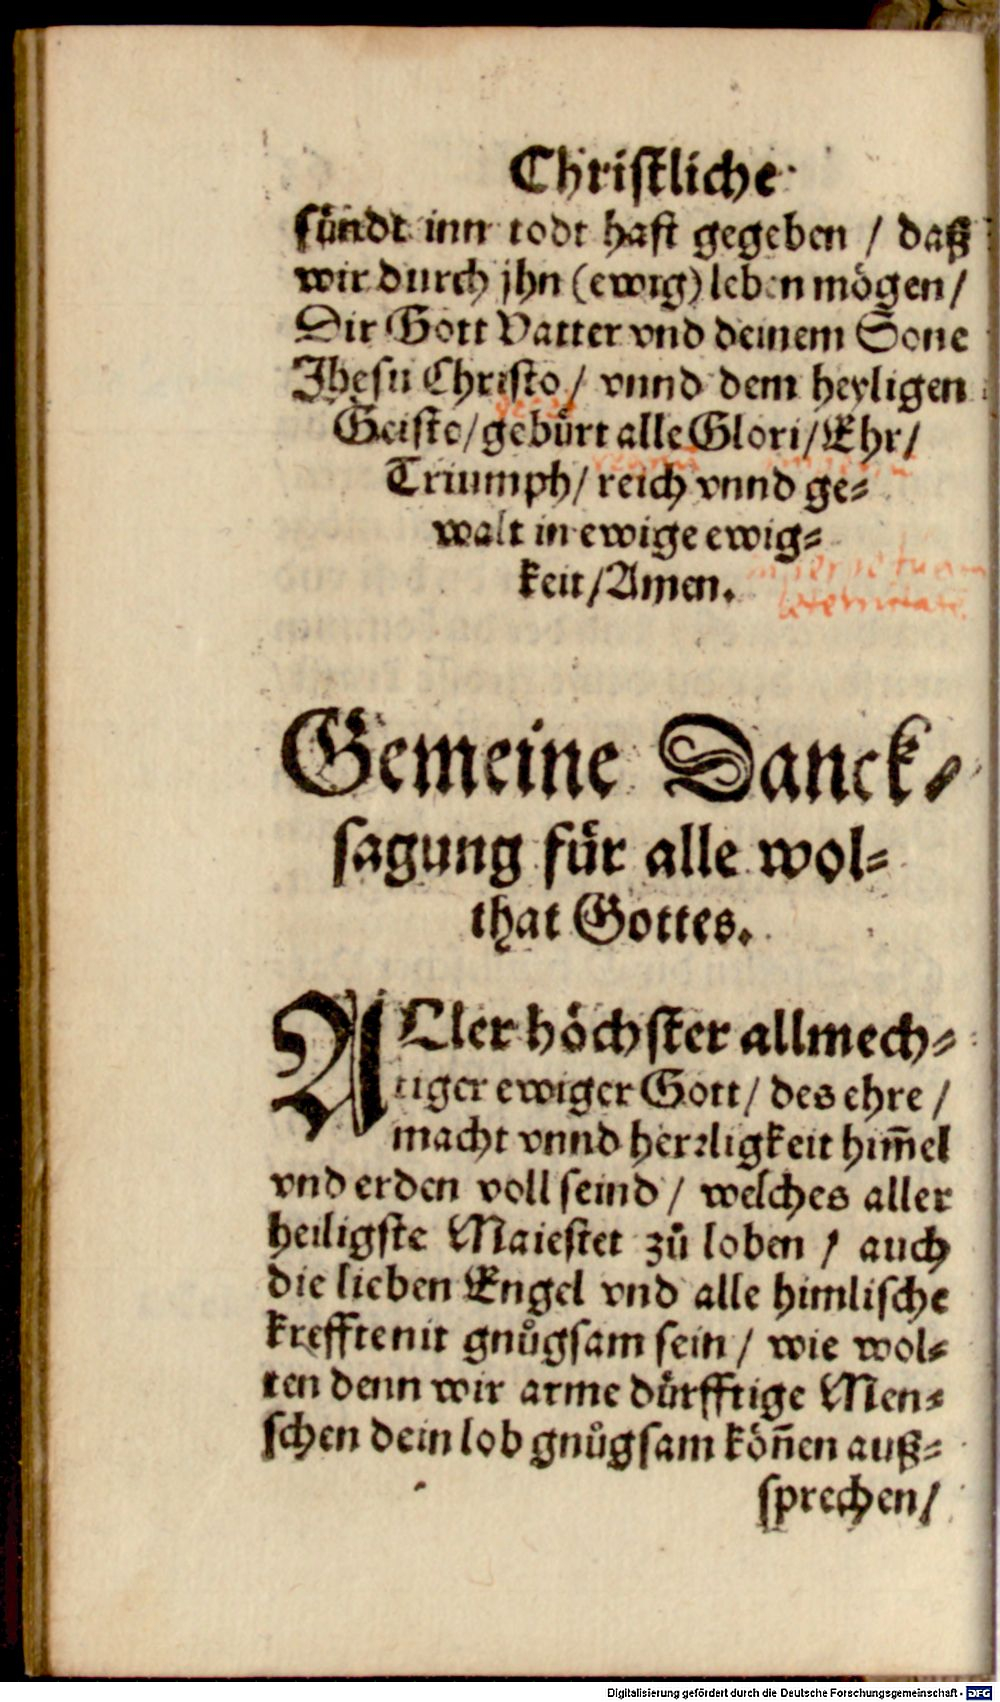 Christliche
sündt inn todt hast gegeben / daß
wir durch jhn (ewig) leben mögen /
Dir Gott Vatter vnd deinem Sone
Jhesu Christo / vnnd dem heyligen
Geiste / gebürt alle Glori / Ehr /
Triumph / reich vnnd ge⸗
walt in ewige ewig⸗
keit / Amen.
Gemeine Danck⸗
sagung für alle wol⸗
that Gottes.
ALler höchster allmech⸗
tiger ewiger Gott / des ehre /
macht vnnd herrligkeit him̃el
vnd erden voll seind / welches aller
heiligste Maiestet zů loben / auch
die lieben Engel vnd alle himlische
krefften nit gnůgsam sein / wie wol⸗
ten denn wir arme dürfftige Men⸗
schen dein lob gnůgsam köñen auß⸗
sprechen /
Digitalisierung gefördert durch die Deutsche Forschungsgemeinschaft - DFG